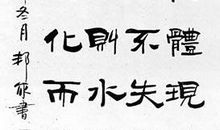 體現
不失
則水
化而
冬月邦書